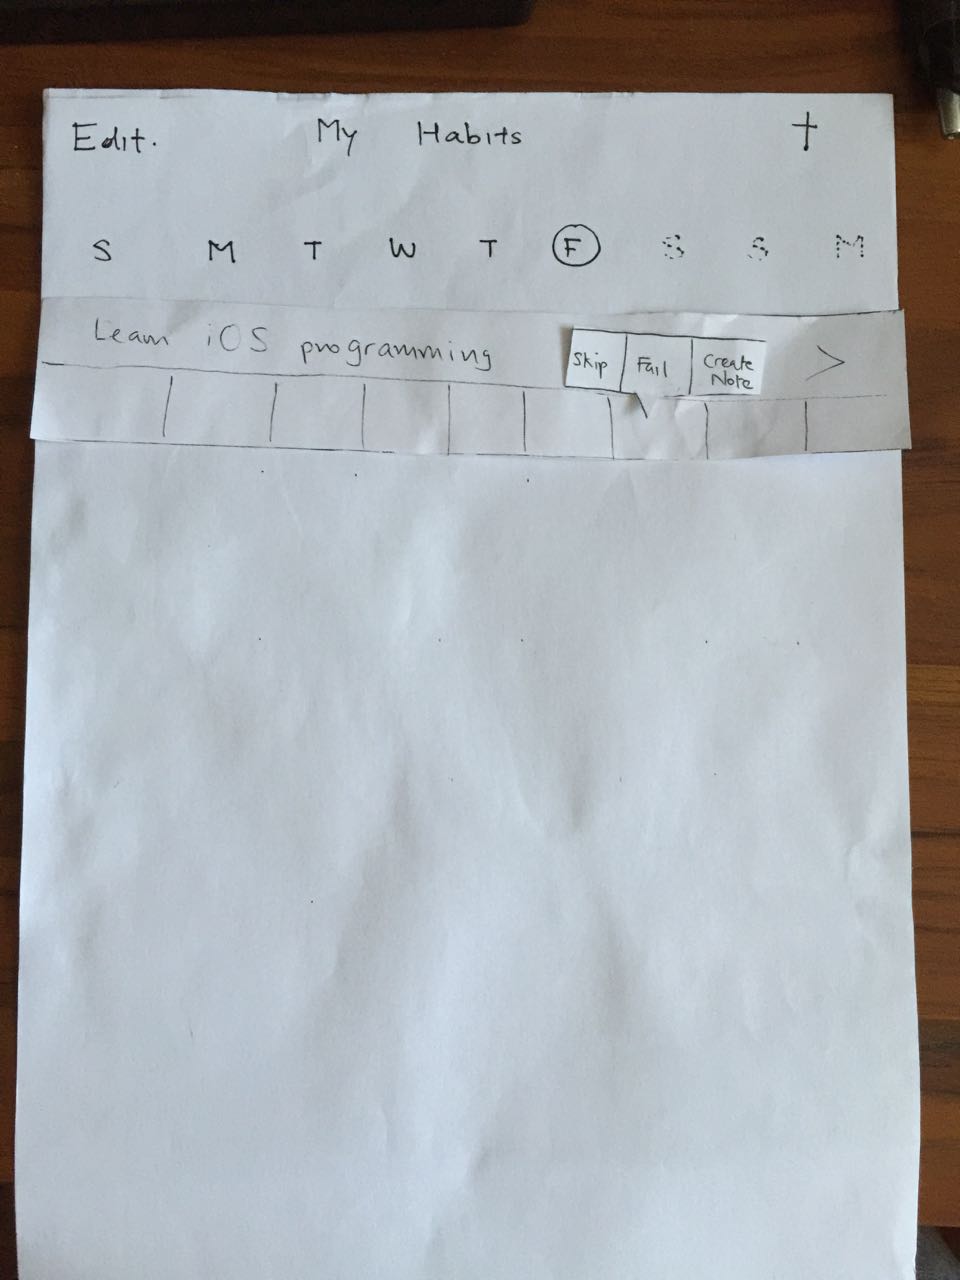 Edit. My Habits +
S M T W T F S S M
Learn iOS programming >
Skip Fail Create Note